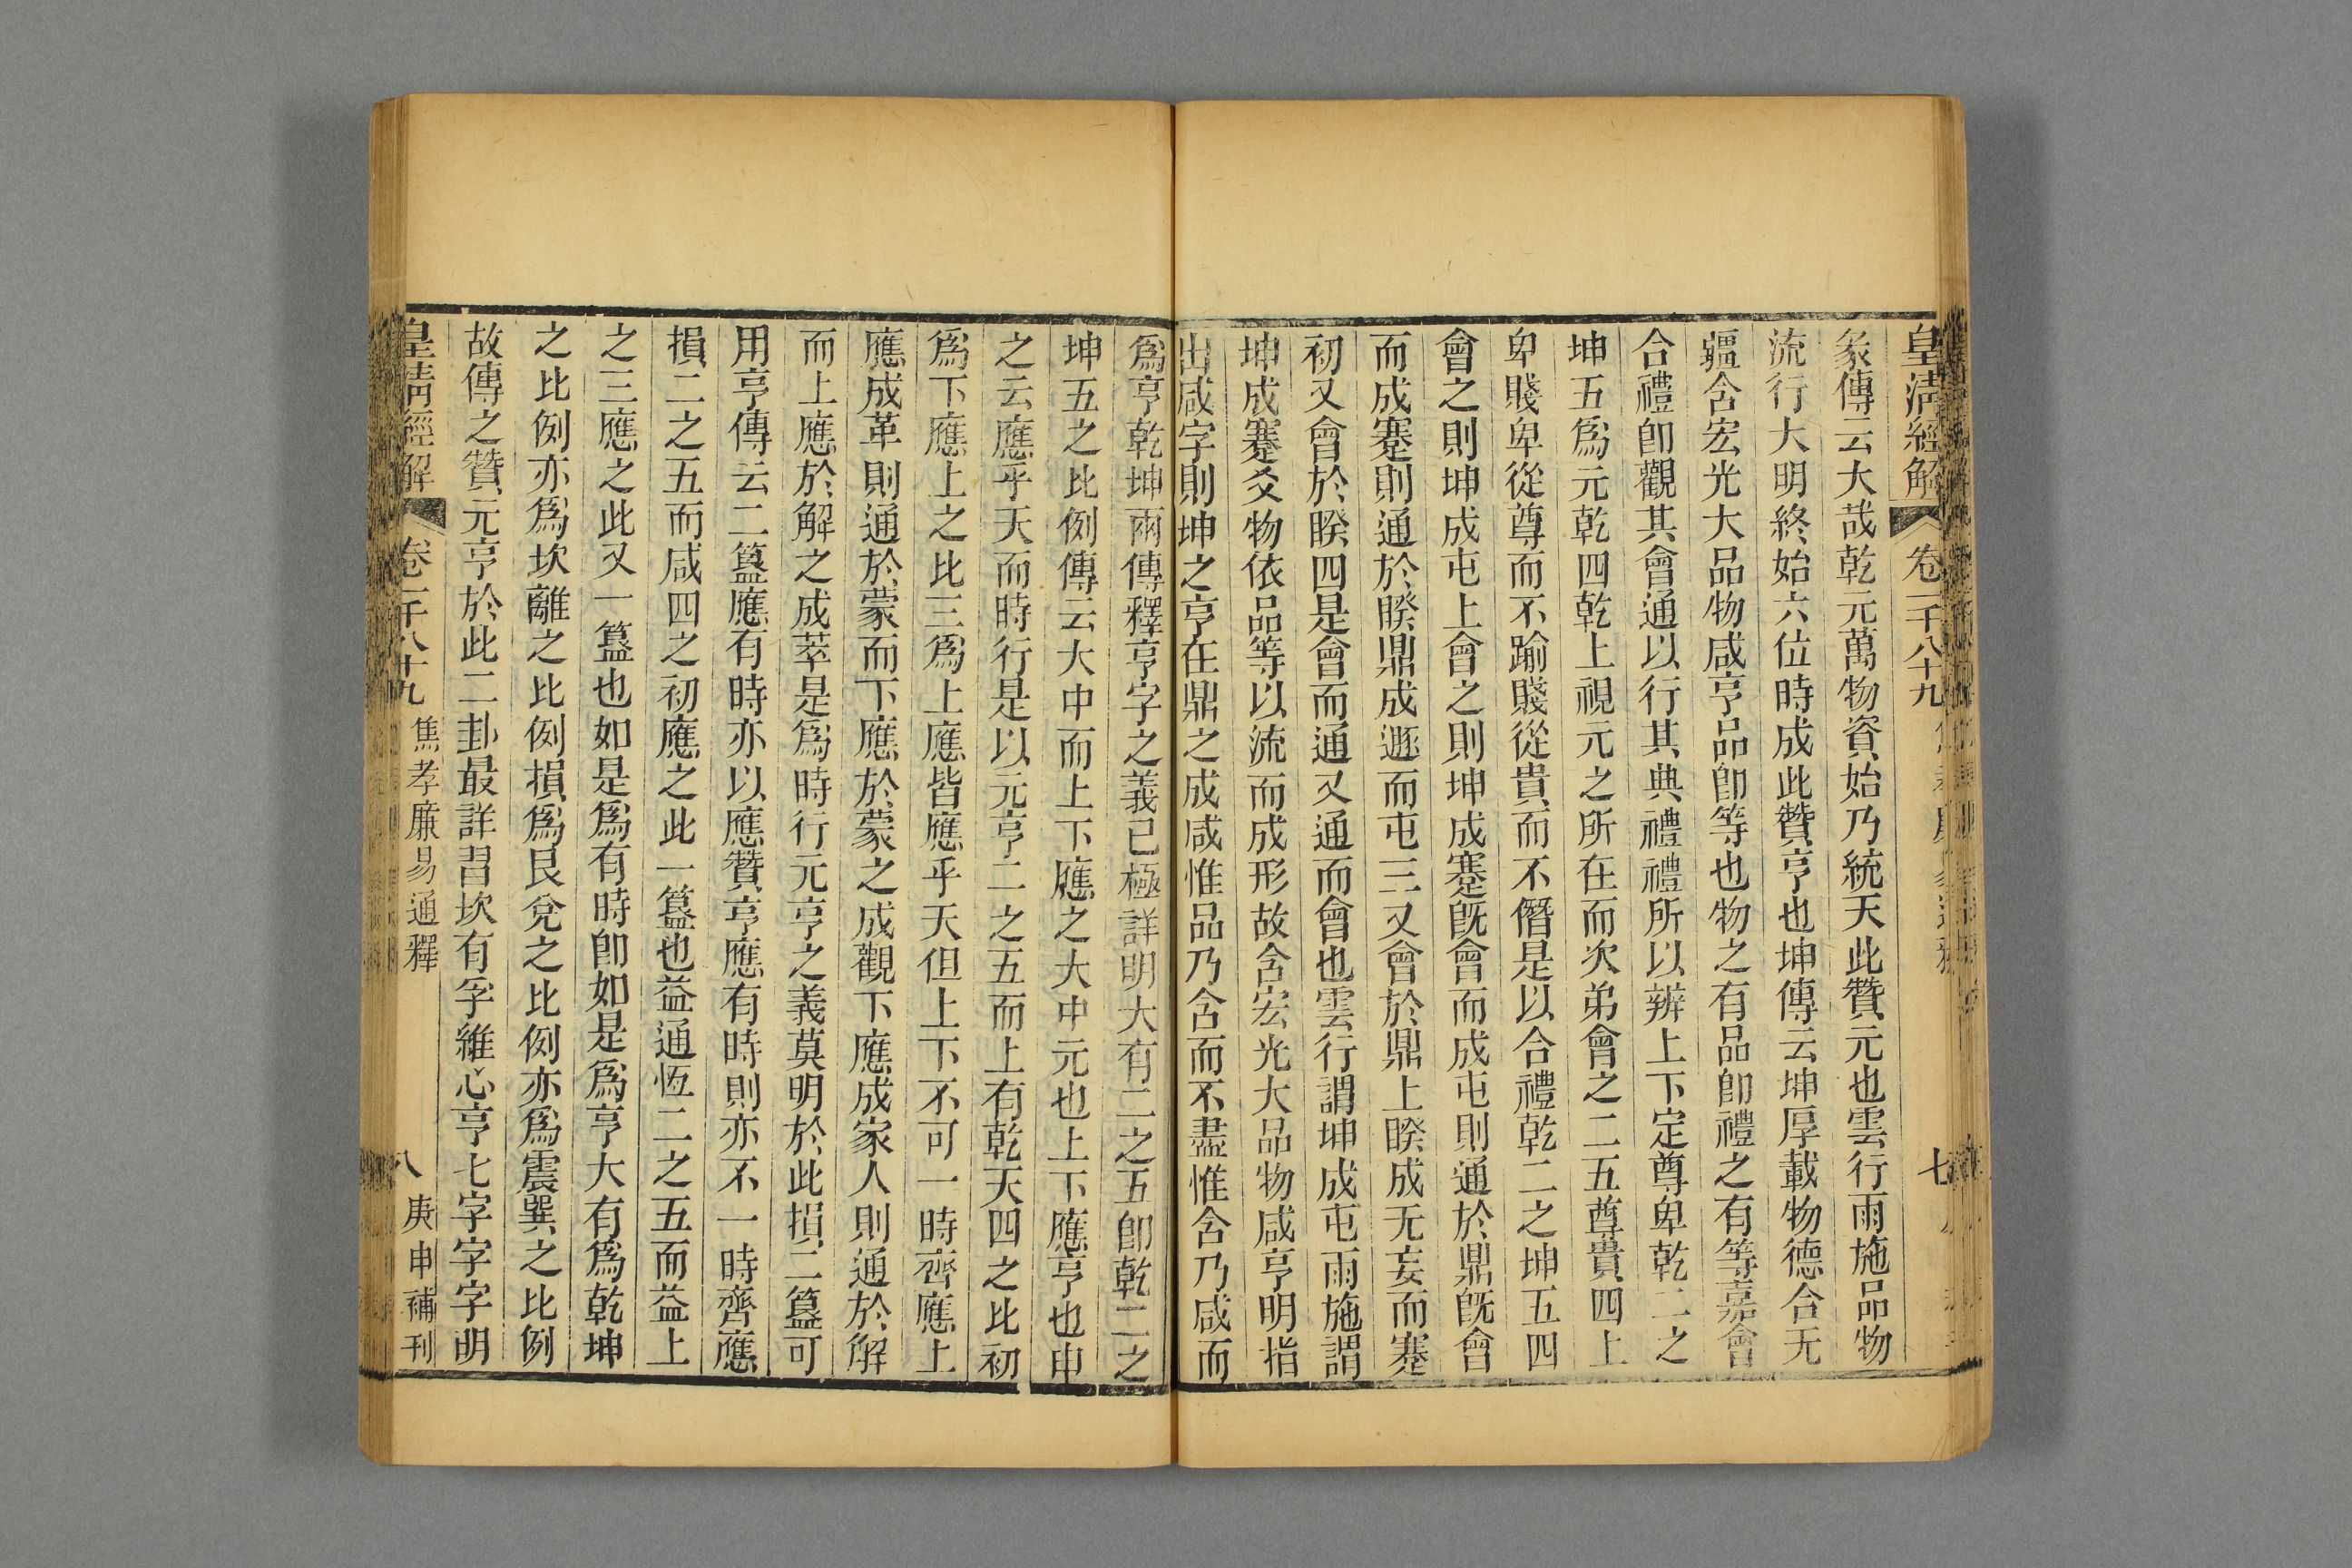 皇清經解 卷一千八十九 七
彖傳云大哉乾元萬物資始乃統天此贊元也雲行雨施品物
流行大明終始六位時成此贊亨也坤傳云坤厚載物德合无
疆含宏光大品物咸亨品卽等也物之有品卽禮之有等嘉會
合禮卽觀其會通以行其典禮禮所以辨上下定尊卑乾二之
坤五爲元乾四乾上視元之所在而次弟會之二五尊貴四上
卑賤卑從尊而不踰賤從貴而不僭是以合禮乾二之坤五四
會之則坤成屯上會之則坤成蹇旣會而成屯則通於鼎旣會
而成蹇則通於睽鼎成遯而屯三又會於鼎上睽成无妄而蹇
初又會於睽四是會而通又通而會也雲行謂坤成屯雨施謂
坤成蹇爻物依品等以流而成形故含宏光大品物咸亨明指
出咸字則坤之亨在鼎之成咸惟品乃含而不盡惟含乃咸而
爲亨乾坤兩傳釋亨字之義已極詳明大有二之五卽乾二之
坤五之比例傳云大中而上下應之大中元也上下應亨也申
之云應乎天而時行是以元亨二之五而上有乾天四之比初
爲下應上之比三爲上應皆應乎天但上下不可一時齊應上
應成革則通於蒙而下應於蒙之成觀下應成家人則通於解
而上應於解之成萃是爲時行元亨之義莫明於此損二簋可
用亨傳云二簋應有時亦以應贊亨應有時則亦不一時齊應
損二之五而咸四之初應之此一簋也益通恆二之五而益上
之三應之此又一簋也如是爲有時卽如是爲亨大有爲乾坤
之比例亦爲坎離之比例損爲艮兌之比例亦爲震巽之比例
故傳之贊元亨於此二卦最詳習坎有孚維心亨七字字字明
皇清經解 卷一千八十九 焦孝廉易通釋 八 庚申補刊